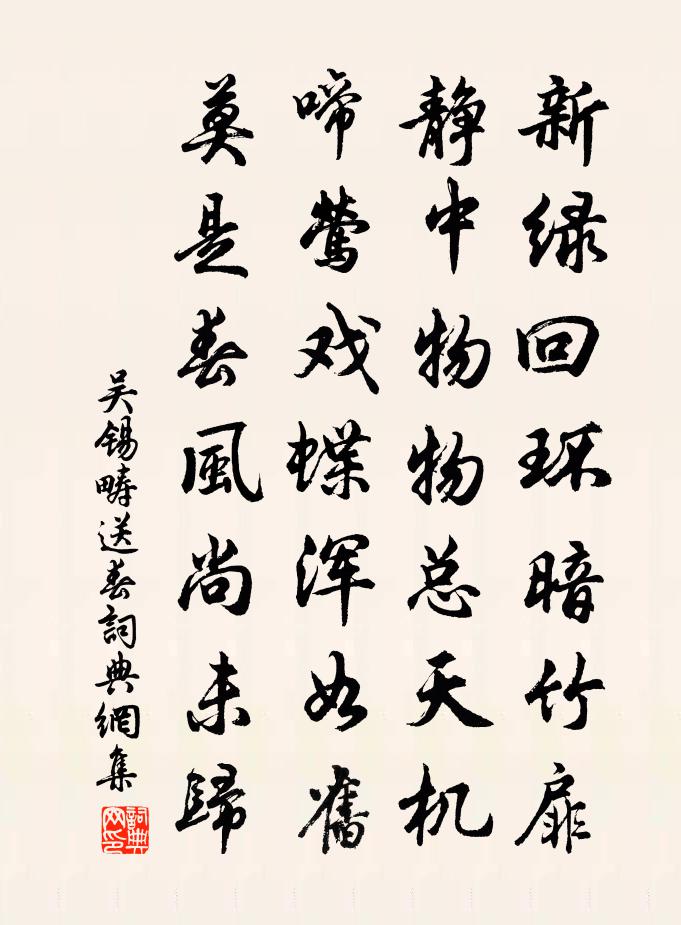 新绿回环暗竹扉
静中物物总天机
啼莺戏蝶浑如舊
莫是春風尚未歸
吴锡畴送春詞典網集
詞典網印